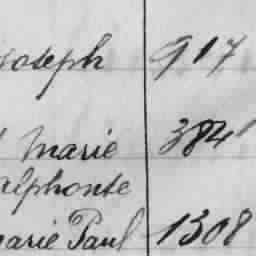 Joseph 917
Marie 384
Alphonse
Marie Paul 1308